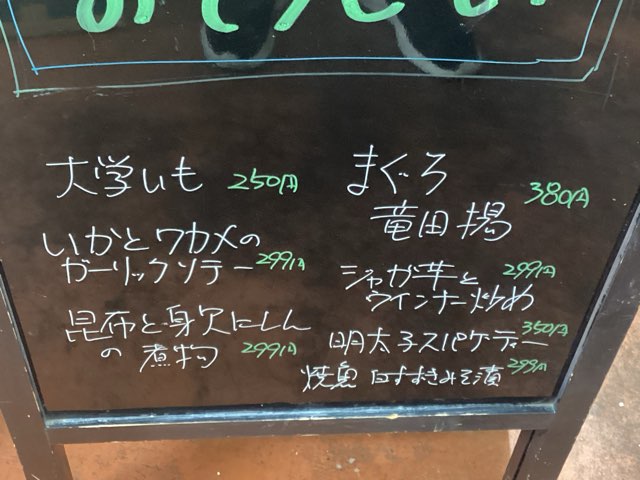 大学いも 250円
いかとワカメの
ガーリックソテー 299円
昆布と身欠にしん
の煮物 299円
まぐろ
竜田揚 380円
ジャガ芋と 299円
ウインナー炒め
明太子スパゲティー 350円
焼魚 白すずきみそ漬 299円